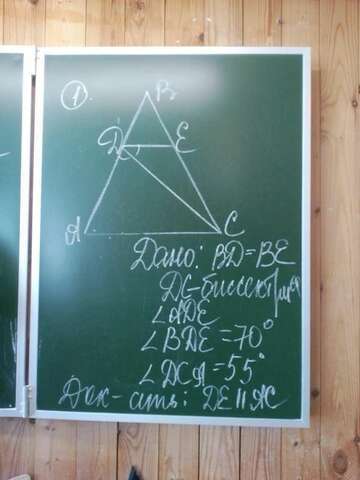 1.
B
D E
A C
Дано: BD=BE
DC-биссектриса
∠ADE
∠BDE=70°
∠DCA=55°
Док-ать: DE||AC